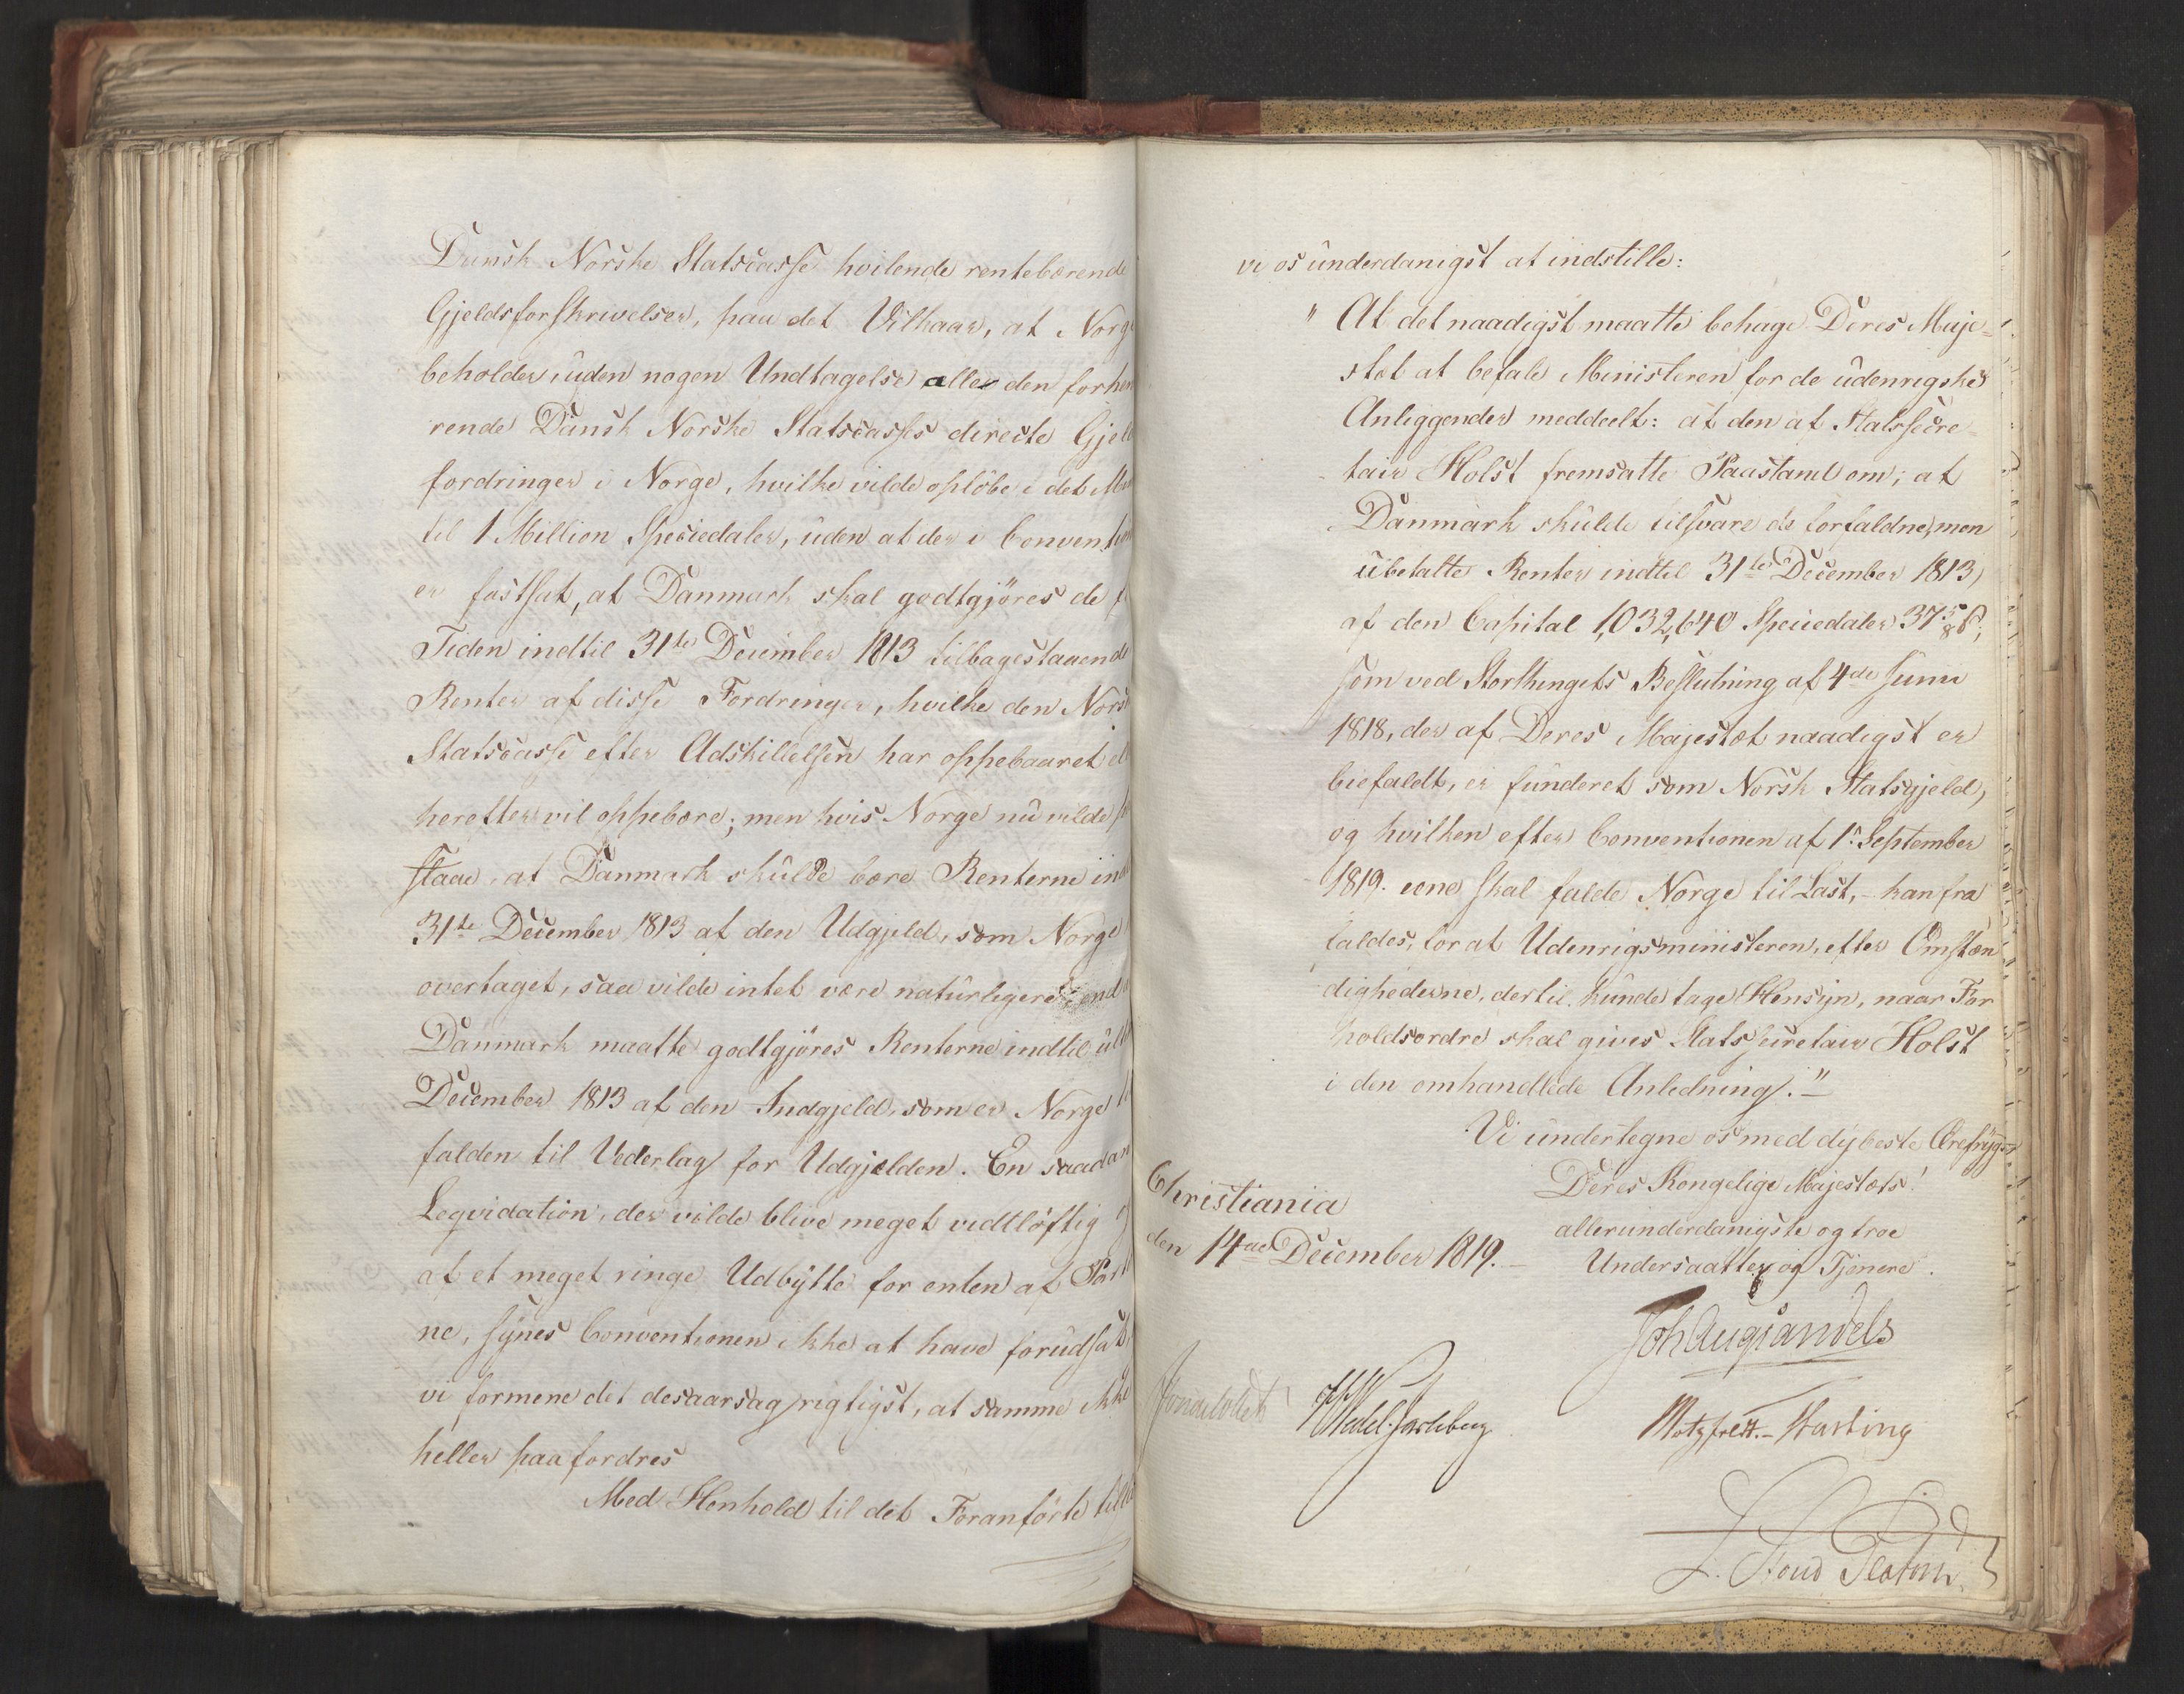 Dansk Norske Statscasse hvilende rentebærende
Gjeldsforskrivelser, paa det Vilkaar, at Norge
beholder, uden nogen Undtagelse alle den forhen
rende Dansk Norske Statscasses directe Gjeld
fordringer i Norge, hvilke vilde opløbe i det
til 1 Million Speciedaler, uden at der i Convention
er fastsat, at Danmark skal godtgjöres de
Tiden indtil 31te December 1813 tilbagestaaende
Renter af disse Fordringer, hvilke den Norsk
Statscasse efter Adskillelsen har oppebaaret
herefter vil oppebære; men hvis Norge nu vilde
staae, at Danmark skulde bære Renterne ind
31te December 1813 af den Udgjeld, som Norge
overtaget, saa vilde intet være naturligere end
Danmark maatte godtgjöres Renterne indtil ult
December 1813 af den Indgjeld, som er Norge til
falden til Vederlag for Udgjelden. En saadan
Leqvidation, der vilde blive meget vidtlöftig
af et meget ringe Udbytte for enten af Part
ne, synes Conventionen ikke at have forudsat
vi formene det desaarsag rigtigst, at samme ikke
heller paafordres
Med Henhold til det Foranförte
vi os underdanigst at indstille:
" At det naadigst maatte behage Deres Maje-
stæt at befale Ministeren for de udenrigske
Anliggender meddeelt: at den af Statssecre-
tair Holst fremsatte Paastand om, at
Danmark skulde tilsvare de forfaldne, men
ubetalte Renter indtil 31te December 1813,
af den Capital 1,032,640 Speciedaler 37 5/8 ß;
som ved Storthingets Beslutning af 4de Junii
1818, der af Deres Majestæt naadigst er
biefaldt, er funderet som Norsk Statsgjeld,
og hvilken efter Conventionen af 1. September
1819. eene skal falde Norge til Last, - kan fra
faldes, for at Udenrigsministeren, efter Omstæn
dighederne, dertil kunde tage Hensyn, naar For
holdsordre skal gives Statssecretair Holst
i den omhandlede Anledning." -
Vi undertegne os med dybeste Ærefrygt
Deres Kongelige Majestæts!
allerunderdanigste og troe
Undersaatter og Tjenere.
Christiania
den 14de December 1819. -
Joh Aug Sandels
Wedel-Jarlsberg
Motzfeldt. - Hasting